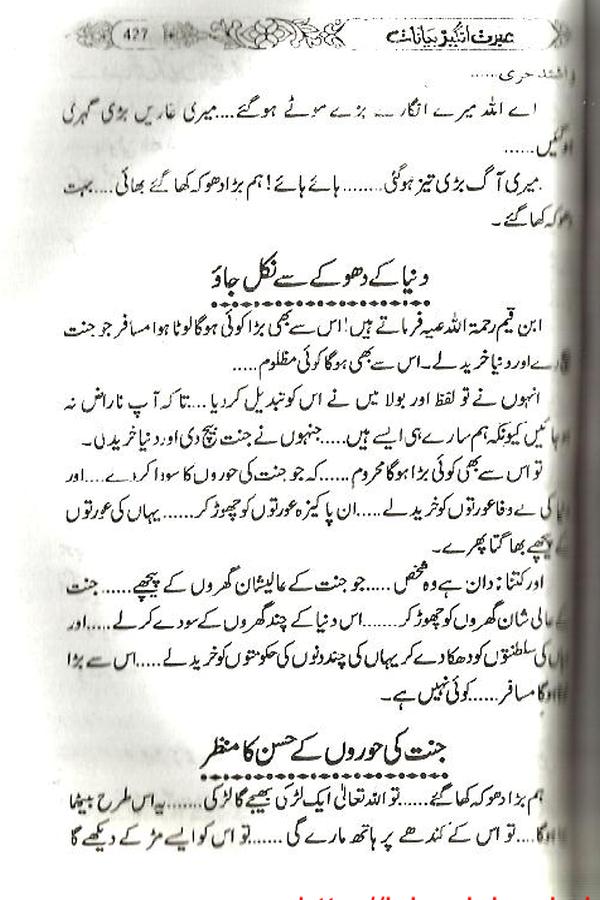 427
عبرت انگیز بیانات
واشتد حری.....
اے اللہ میرے انگارے بڑے موٹے ہو گئے....میری غاریں بڑی گہری
ہو گئیں......
میری آگ بڑی تیز ہو گئی........ہائے ہائے! ہم بڑا دھوکہ کھا گئے بھائی....بہت
دھوکہ کھا گئے۔
دنیا کے دھوکے سے نکل جاؤ
ابن قیم رحمۃ اللہ علیہ فرماتے ہیں! اس سے بھی بڑا کوئی ہوگا لوٹا ہوا مسافر جو جنت
دے اور دنیا خرید لے۔ اس سے بھی ہوگا کوئی مظلوم.....
انہوں نے تو لفظ اور بولا میں نے اس کو تبدیل کر دیا....تاکہ آپ ناراض نہ
ہو جائیں کیونکہ ہم سارے ہی ایسے ہیں.....جنہوں نے جنت بیچ دی اور دنیا خرید لی۔
تو اس سے بھی کوئی بڑا ہوگا محروم......کہ جو جنت کی حوروں کا سودا کر دے....اور
کی بے وفا عورتوں کو خرید لے.....ان پاکیزہ عورتوں کو چھوڑ کر......یہاں کی عورتوں
کے پیچھے بھاگتا پھرے۔
اور کتنا نادان ہے وہ شخص.....جو جنت کے عالیشان گھروں کے پیچھے......جنت
کے عالی شان گھروں کو چھوڑ کر.......اس دنیا کے چند گھروں کے سودے کر لے.....اور
کی سلطنتوں کو دھکا دے کر یہاں کی چند دنوں کی حکومتوں کو خرید لے.....اس سے بڑا
ہوگا مسافر......کوئی نہیں ہے۔
جنت کی حوروں کے حسن کا منظر
ہم بڑا دھوکہ کھا گئے......تو اللہ تعالیٰ ایک لڑکی بھیجے گا لڑکی.......یہ اس طرح بیٹھا
ہوگا....تو اس کے کندھے پر ہاتھ مارے گی.......تو اس کو ایسے مڑ کے دیکھے گا